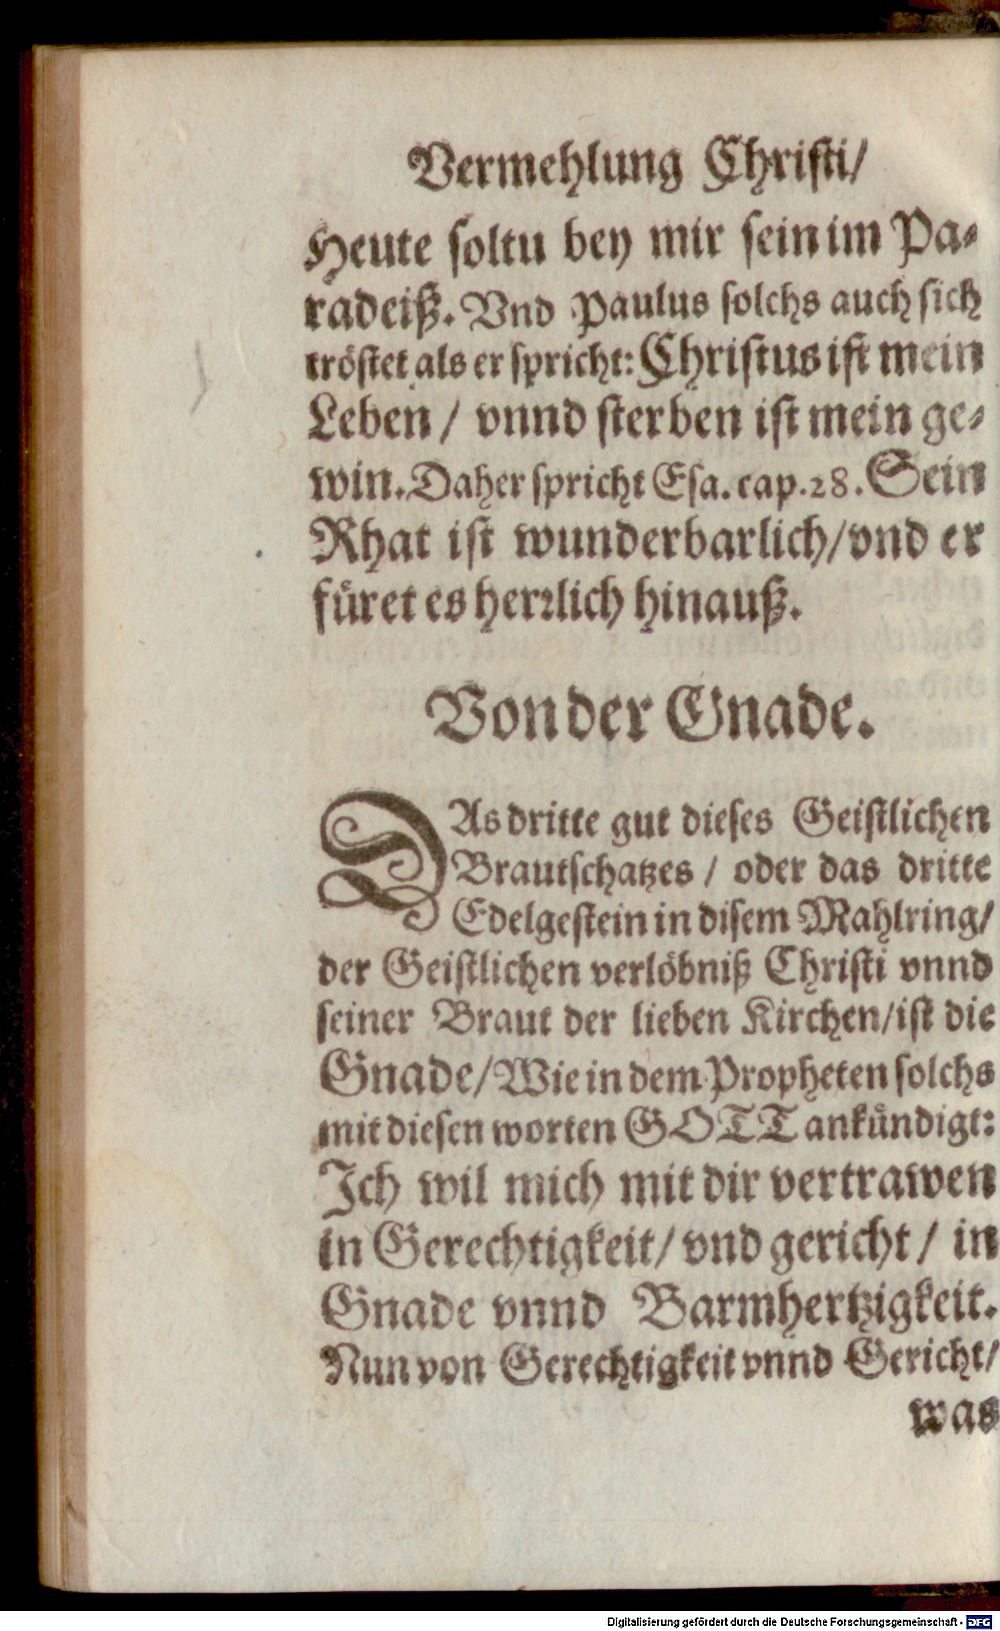 Vermehlung Christi/
Heute soltu bey mir sein im Pa⸗
radeiß. Vnd Paulus solchs auch sich
tröstet als er spricht: Christus ist mein
Leben / vnnd sterben ist mein ge⸗
win. Daher spricht Esa. cap. 28. Sein
Rhat ist wunderbarlich/ vnd er
füret es herꝛlich hinauß.
Von der Gnade.
DAs dritte gut dieses Geistlichen
Brautschatzes / oder das dritte
Edelgestein in disem Mahlring/
der Geistlichen verlöbniß Christi vnnd
seiner Braut der lieben Kirchen/ ist die
Gnade/ Wie in dem Propheten solchs
mit diesen worten GOTT ankündigt:
Ich wil mich mit dir vertrawen
in Gerechtigkeit/ vnd gericht / in
Gnade vnnd Barmhertzigkeit.
Nun von Gerechtigkeit vnnd Gericht/
was
Digitalisierung gefördert durch die Deutsche Forschungsgemeinschaft - DFG